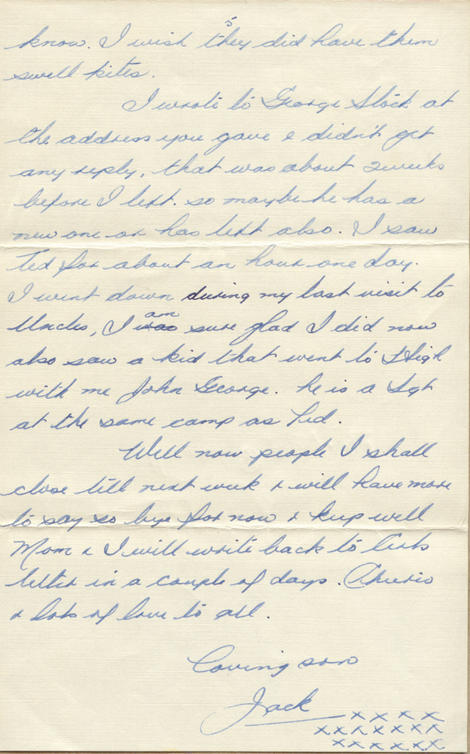 5
know. I wish they did have them
swell kites.
I wrote to George Stock at
the address you gave & didn't get
any reply, that was about 2 weeks
before I left. so maybe he has a
new one or has left also. I saw
Ted for about an hour one day.
I went down during my last visit to
Uncles, I was am sure glad I did now
also saw a kid that went to High
with me John George. he is a Sgt
at the same camp as Ted.
Well now people I shall
close till next week & will have more
to say so bye for now & keep well
Mom & I will write back to
letter in a couple of days. Cheerio
& lots of love to all.
Loving son
Jack x x x x
x x x x x x x
x x x x x x